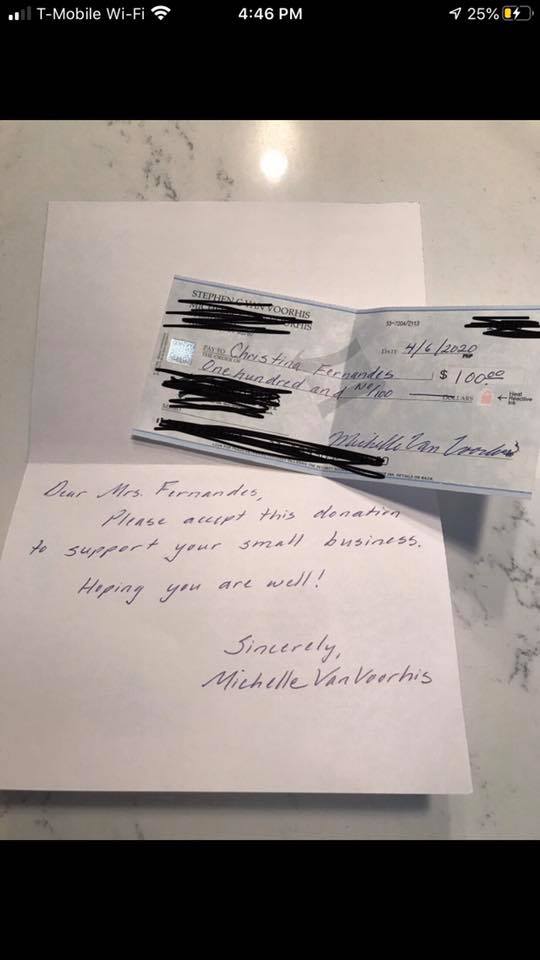 T-Mobile Wi-Fi 4:46 PM 25%
STEPHEN C VAN VOORHIS
53-7204/2113
DATE 4/6/2020
PAY TO THE ORDER OF Christina Fernandes $ 100.00
One hundred and No/100 DOLLARS
Heat
Reactive
Ink
Michelle Van Voorhis
Dear Mrs. Fernandes,
Please accept this donation
to support your small business.
Hoping you are well!
Sincerely,
Michelle VanVoorhis